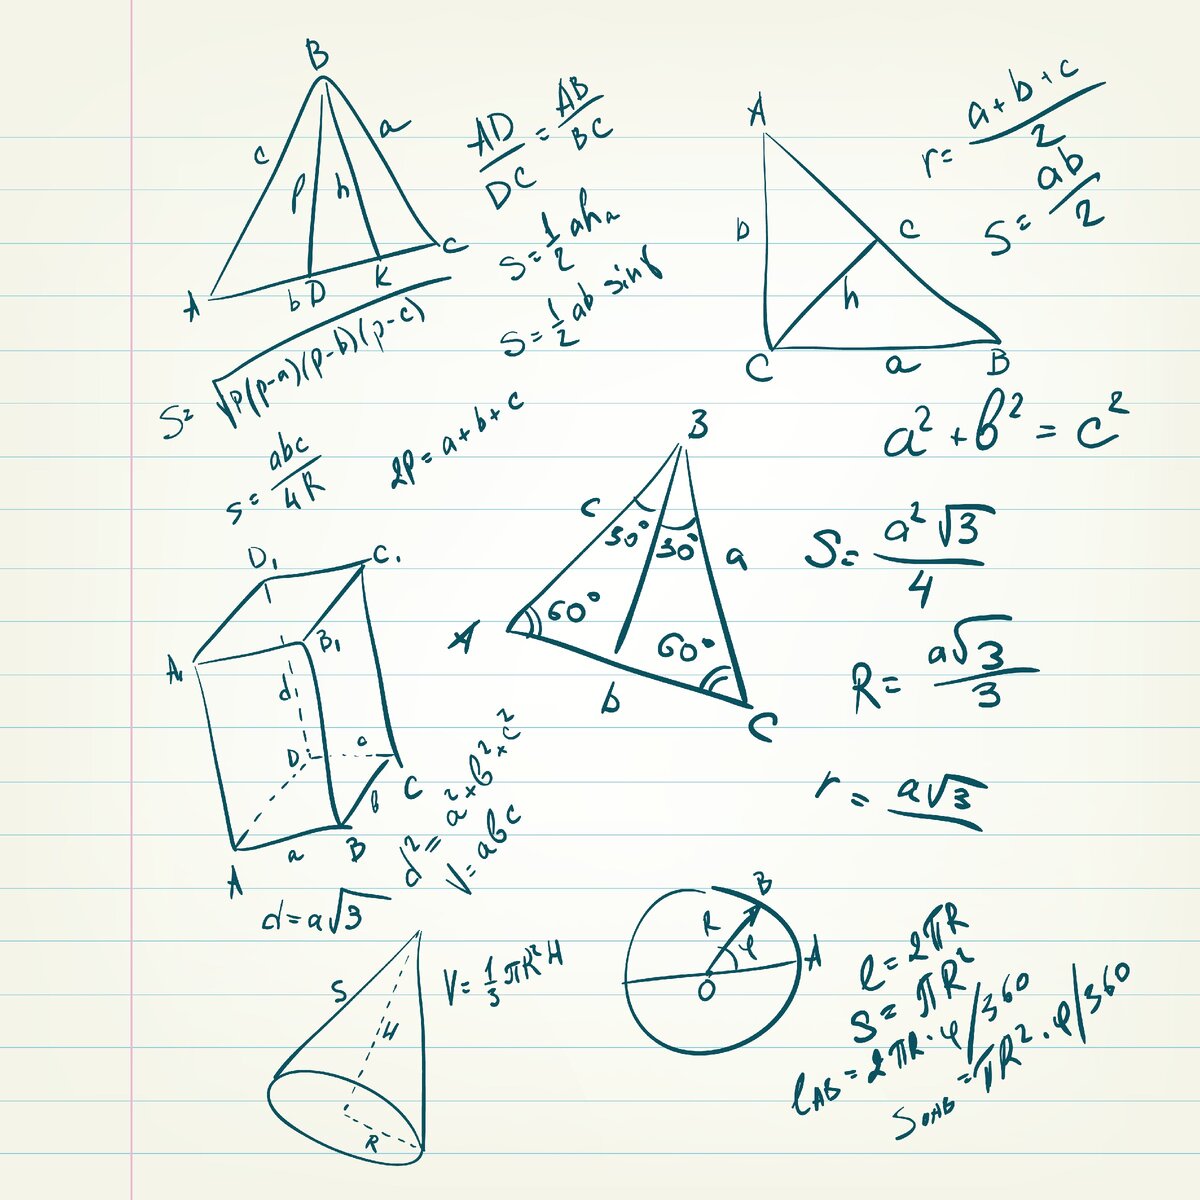 B
c
a
β
h
A
b D
K
C
AD/DC = AB/BC
S = 1/2 ah
S = 1/2 ab sin
S = √p(p-a)(p-b)(p-c)
S = abc/4R
2P = a+b+c
A
b
c
h
C
a
B
r = a+b+c/2
S = ab/2
a² + b² = c²
B
c
30° 30°
a
60°
60°
A
b
C
S = a²√3/4
R = a√3/3
r = a√3
D₁
C₁
A₁
B₁
d
D
c
C
b
A
a
B
d² = a² × b² × c²
V = abc
d = a√3
S
H
R
V = 1/3 πR²H
B
R
φ
A
O
ℓ = 2πR
S = πR²
ℓAB = 2πR · φ/360
SOAB = πR² · φ/360